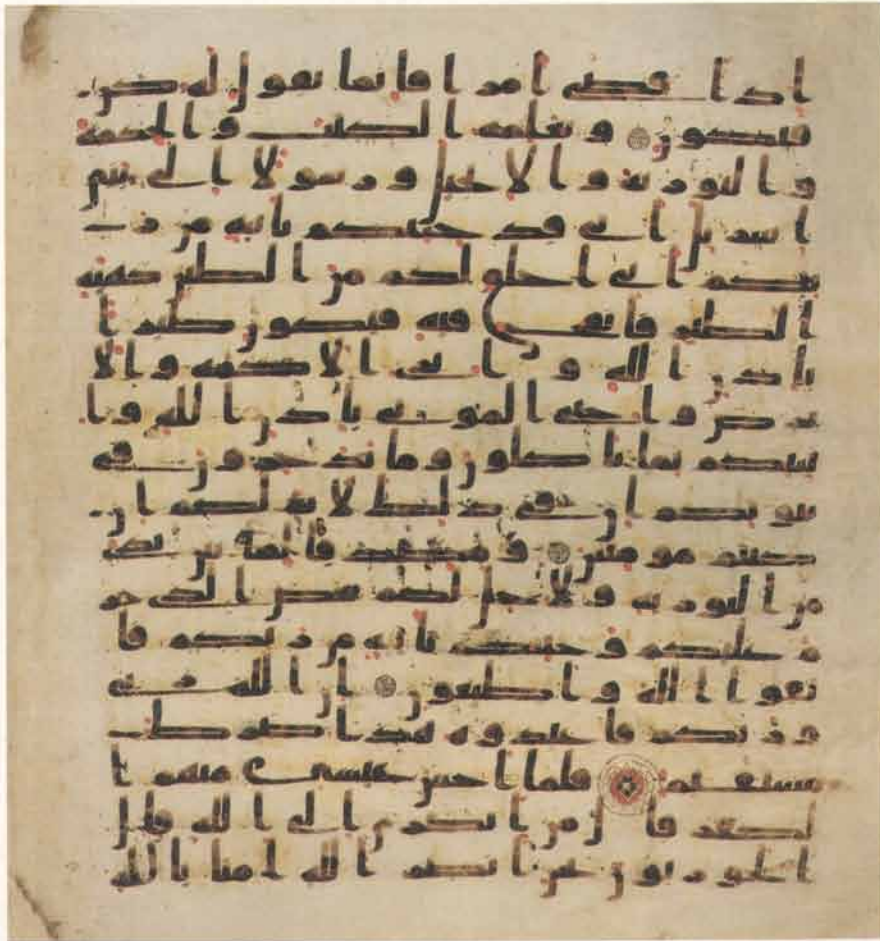 اذا قضى امرا فانما يقول له كن
فيكون ويعلمه الكتب والحكمة
والتورية والانجيل ورسولا الى بنى
اسريل انى قد جئتكم باية من ر
بكم انى اخلق لكم من الطين كهية
الطير فانفخ فيه فيكون طيرا
باذن الله و ابرى الاكمه والا
برص واحى الموتى باذن الله وا
نبيكم بما تاكلون وما تدخرون فى
بيوتكم ان فى ذلك لاية لكم ان
كنتم مومنين ومصدقا لما بين يدى
من التورية ولاحل لكم بعض الذى حر
م عليكم وجئتكم باية من ربكم فا
تقوا الله واطيعون ان الله ربى
وربكم فاعبدوه هذا صرط
مستقيم فلما احس عيسى منهم ا
لكفر قال من انصرى الى الله قال
الحوريون نحن انصر الله امنا بالله